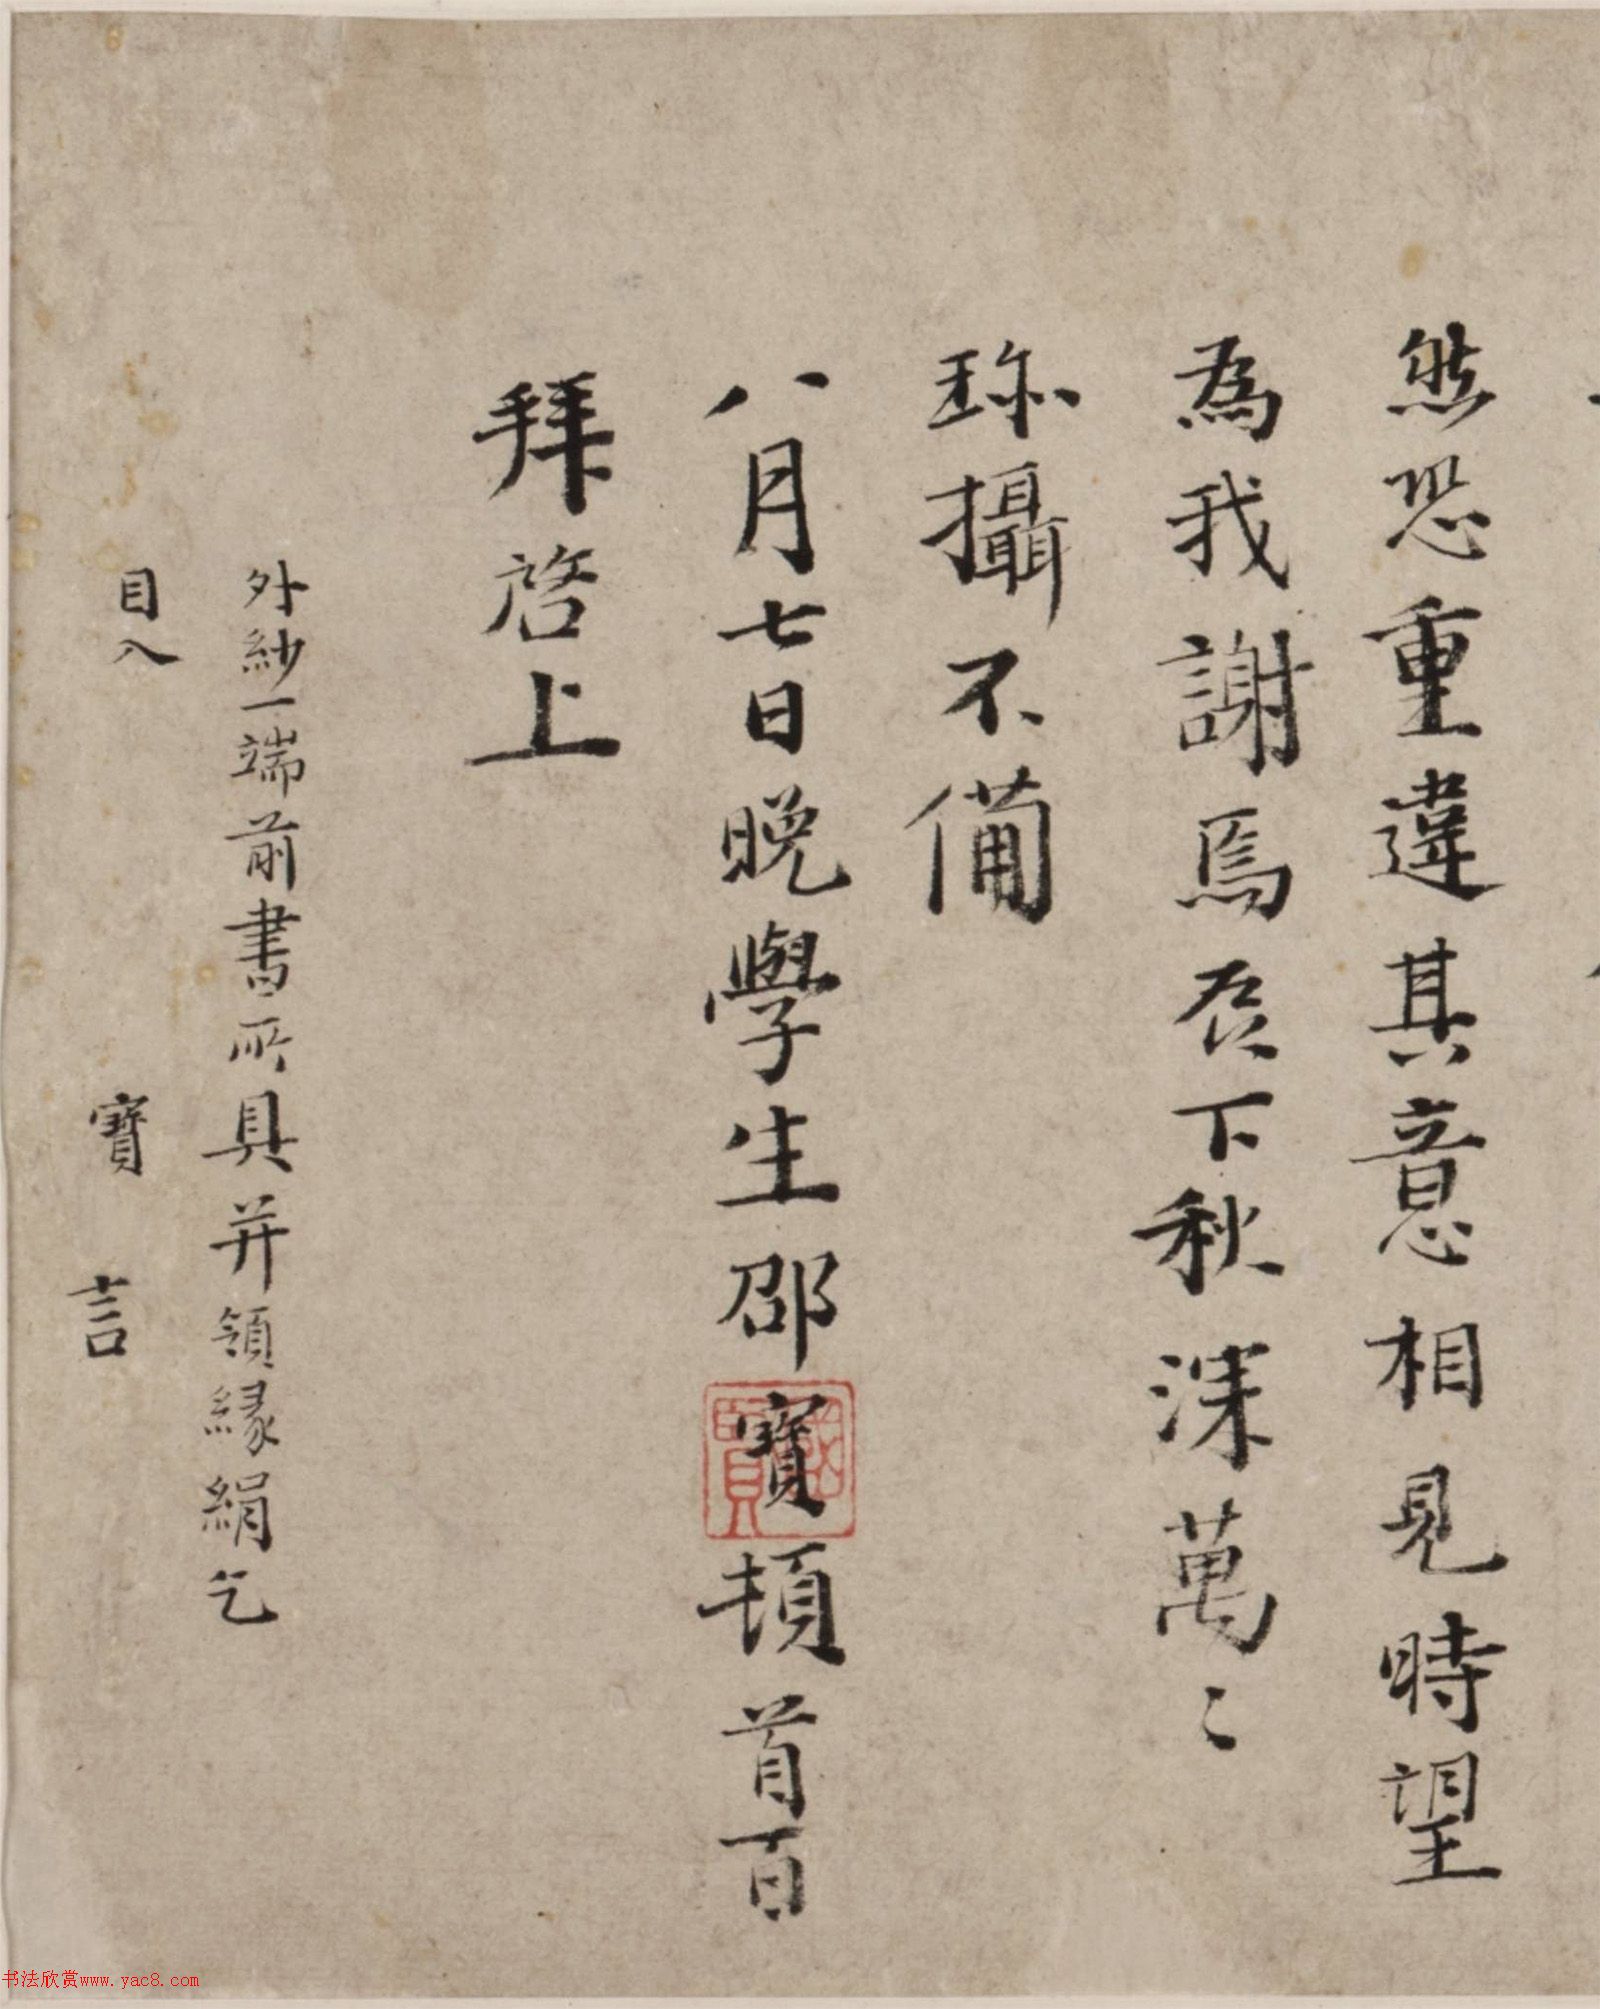 然恐重違其意相見時望
為我謝焉辰下秋深萬〻
珎攝不備
八月七日晚學生邵寶頓首百
拜啓上
外紗一端前書所具并領緣絹乞
目入　寶　言
國賢
书法欣赏www.yac8.com